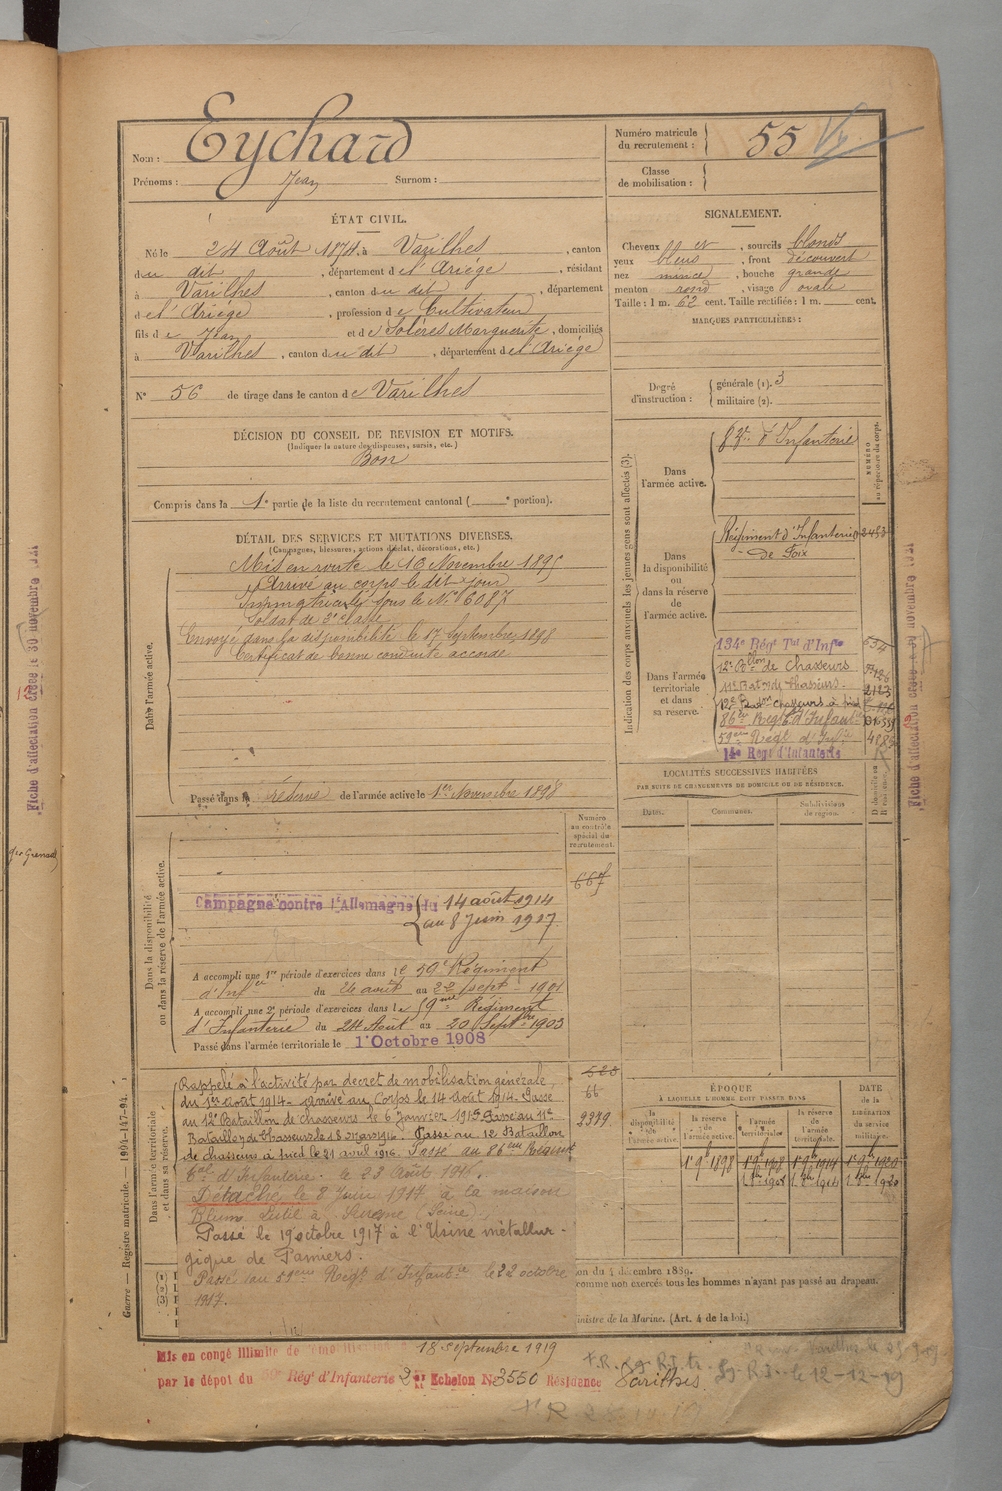 Nom : Eychard
Prénoms : Jean Surnom :
Numéro matricule du recrutement : 55
Classe de mobilisation :
ÉTAT CIVIL.
Né le 24 Août 1874, à Varilhes, canton
du dit, département de l'Ariège, résidant
à Varilhes, canton du dit, département
de l'Ariège, profession de Cultivateur
fils de Jean et de Solères Marguerite, domiciliés
à Varilhes, canton du dit, département de l'Ariège
N° 56 de tirage dans le canton de Varilhes
SIGNALEMENT.
Cheveux et, sourcils blonds
yeux bleus, front découvert
nez mince, bouche grande
menton rond, visage ovale
Taille : 1 m. 62 cent. Taille rectifiée : 1 m. cent.
MARQUES PARTICULIÈRES :
Degré d'instruction : générale (1). 3
militaire (2).
DÉCISION DU CONSEIL DE REVISION ET MOTIFS.
(Indiquer la nature des dispenses, sursis, etc.)
Bon
Compris dans la 1e partie de la liste du recrutement cantonal ( e portion).
DÉTAIL DES SERVICES ET MUTATIONS DIVERSES.
(Campagnes, blessures, actions d'éclat, décorations, etc.)
Dans l'armée active.
Mis en route le 16 Novembre 1895
Arrivé au corps le dit jour
Immatriculé sous le N° 6087
Soldat de 2e classe
Envoyé dans la disponibilité le 17 Septembre 1898
Certificat de bonne conduite accordé
Passé dans la réserve de l'armée active le 1er Novembre 1898
Indication des corps auxquels les jeunes gens sont affectés (3).
NUMÉRO au répertoire du corps.
Dans l'armée active.
d'Infanterie
Dans la disponibilité ou dans la réserve de l'armée active.
Régiment d'Infanterie 2453
de Foix
Dans l'armée territoriale et dans sa réserve.
134e Régt Tal d'Infie
12e Bollon de Chasseurs
11e Baton de Chasseurs 2123
12e Baton Chasseurs à pied
86me Régt d'Infantie
59eme Régt d'Infie
14e Régt d'Infanterie
LOCALITÉS SUCCESSIVES HABITÉES
PAR SUITE DE CHANGEMENTS DE DOMICILE OU DE RÉSIDENCE.
Dates. Communes. Subdivisions de région.
Numéro au contrôle spécial du recrutement.
667
Dans la disponibilité ou dans la réserve de l'armée active.
Campagne contre l'Allemagne du 14 août 1914
au 8 Juin 1917
A accompli une 1re période d'exercices dans le 59e Régiment
d'Infie du 26 août au 22 sept 1901
A accompli une 2e période d'exercices dans le 59eme Régiment
d'Infanterie du 24 Août au 20 Septbre 1903
Passé dans l'armée territoriale le 1 Octobre 1908
Dans l'armée territoriale et dans sa réserve.
Rappelé à l'activité par decret de mobilisation générale
du 1er août 1914 - arrivé au Corps le 14 Août 1914. Passé
au 12e Bataillon de chasseurs le 6 Janvier 1915. Passé au 11e
Bataillon de Chasseurs le 18 mars 1916. Passé au 12 Bataillon
de chasseurs à pied le 21 avril 1916. Passé au 86eme Régiment
d'Infanterie. le 23 Août 1916.
Détaché le 8 Juin 1917 à la maison
Blum à Suresne (Seine)
Passé le 19 octobre 1917 à l'Usine métallur-
gique de Pamiers.
Passé au 59eme Régt d'Infantie le 22 octobre
1917.
66
2379
ÉPOQUE
À LAQUELLE L'HOMME DOIT PASSER DANS
la disponibilité de l'armée active. la réserve de l'armée active. l'armée territoriale. la réserve de l'armée territoriale.
DATE de la LIBÉRATION du service militaire.
1er 9bre 1898 1er 9bre 1908 1er 9bre 1914 1er 9bre 1920
on du 4 décembre 1889.
comme non exercés tous les hommes n'ayant pas passé au drapeau.
inistre de la Marine. (Art. 4 de la loi.)
Guerre — Registre matricule. — 194-147-94.
Mis en congé illimité de démobilisation 18 septembre 1919
par le dépot du 59e Régt d'Infanterie 2e Echelon N° 3550 Résidence Varilhes
le 12-12-19
Fiche d'affectation créée le 30 novembre 1921
Fiche d'affectation créée le 30 novembre 1921